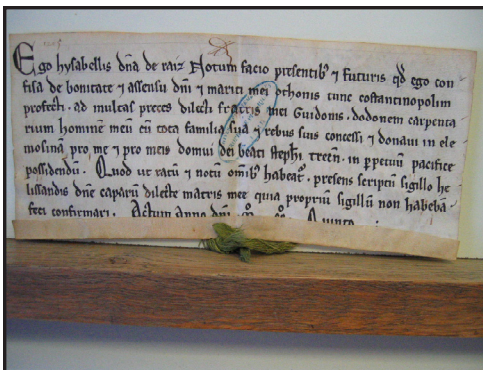 Ego hysabellis dña de raiz Notum facio presentib⁊ ⁊ futuris qd ego con
fisa de bonitate ⁊ assensu dñi ⁊ mariti mei othonis tunc costantinopolim
profecti · ad multas preces dilecti fratris mei Guidonis · dodonem carpenta
rium hominē meū cū tota familia sua ⁊ rebus suis concessi ⁊ donavi in ele
mosinā pro me ⁊ pro meis domui dei beati stephi trecen · in ppetuū pacifice
possidendū · Quod ut ratū ⁊ notū omib⁊ habeat · presens scriptū sigillo he
lissandis dñe caparū dilecte matris mee quia proprium sigillū non habebā ·
feci confirmari · Actum anno dñi